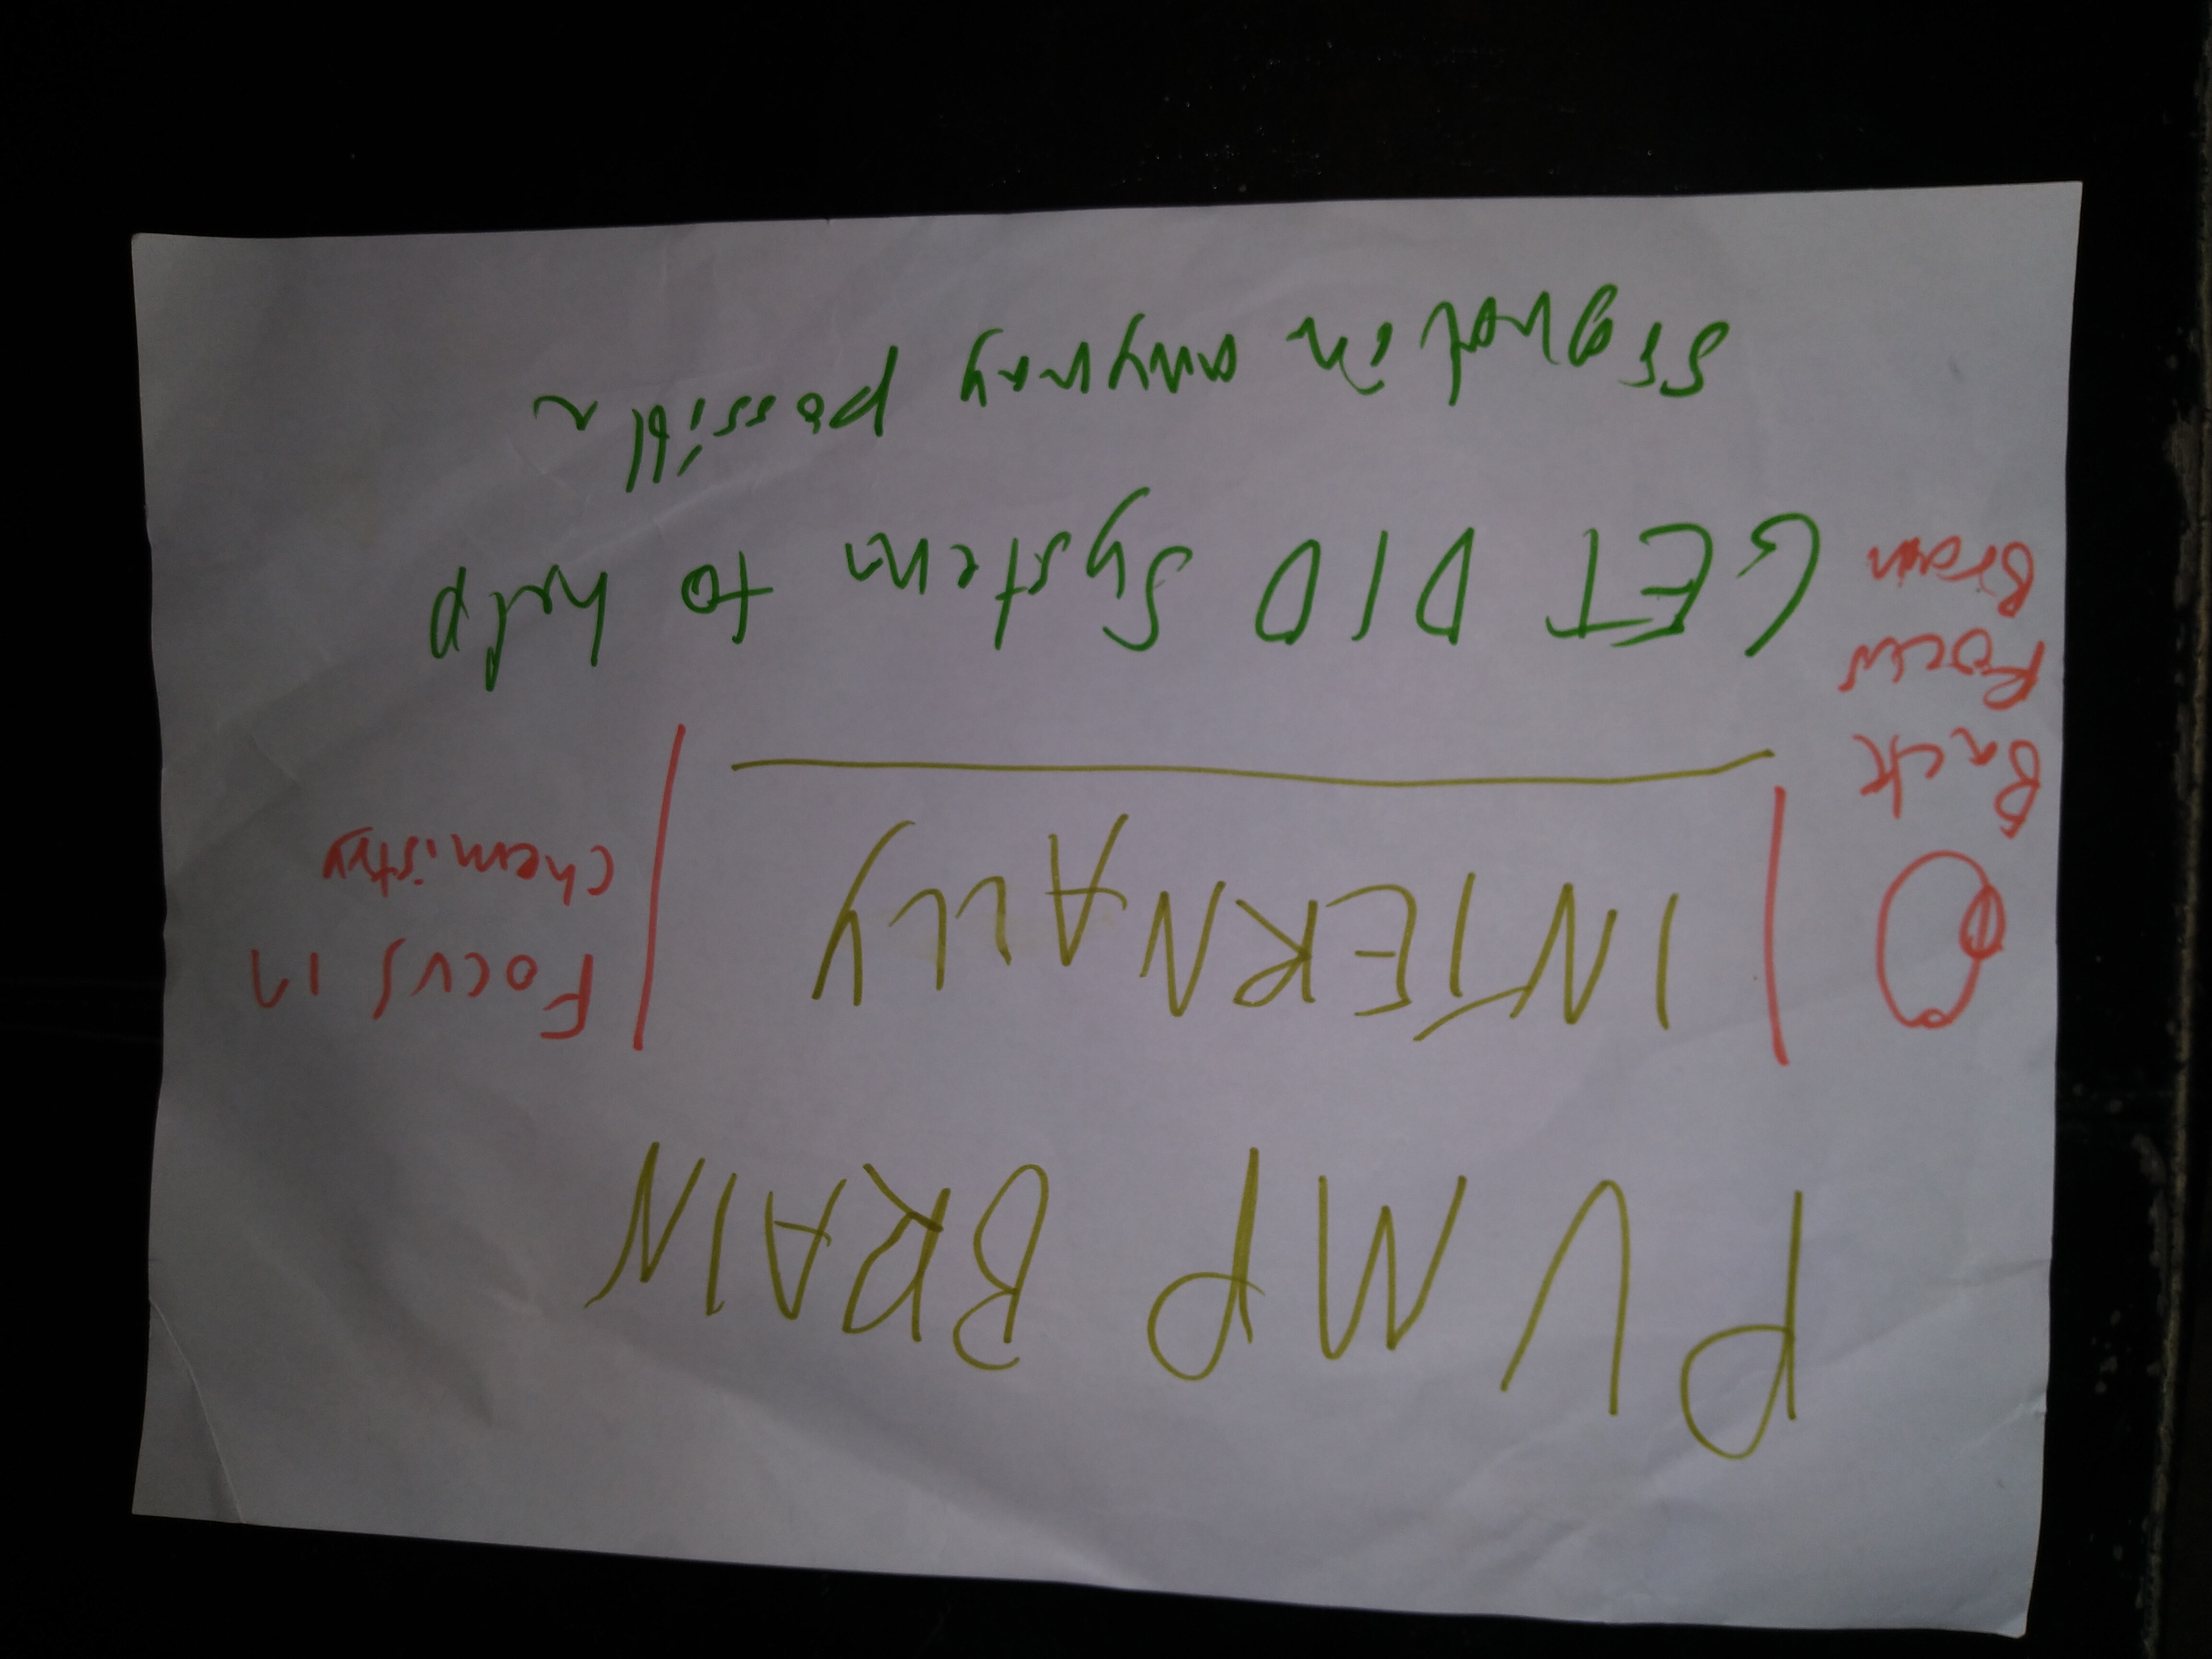 PUMP BRAIN
INTERNALLY
FOCUS in
Chemistry
Back
Focus
Brain
GET DID System to help
in anyway possible